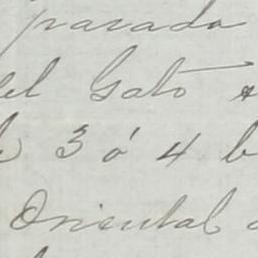 parada
el Gato
3 ó 4 b
Oriental